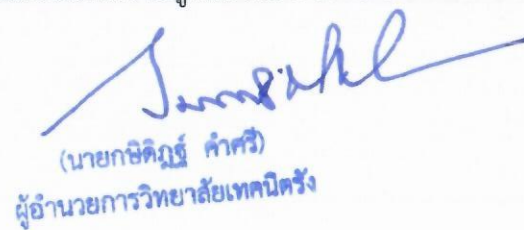 (นายกษิดิฏฐ์ คำศรี)
ผู้อำนวยการวิทยาลัยเทคนิคตรัง